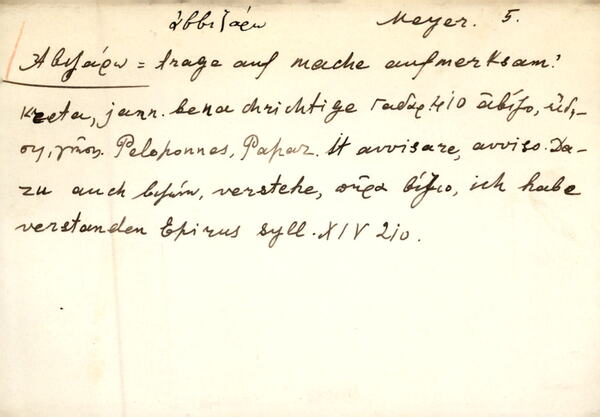 ἀββιζάρω Meyer. 5.
Αβιζάρω = trage auf mache aufmerksam.
Kreta, jann. benachrichtige Γαδαρ. 410 ἀβίζο,
Peloponnes, Papaz. It avvisare, avviso. Da-
zu auch verstehe, πῆρα βίζιο, ich habe
verstanden Epirus syll. XIV 210.